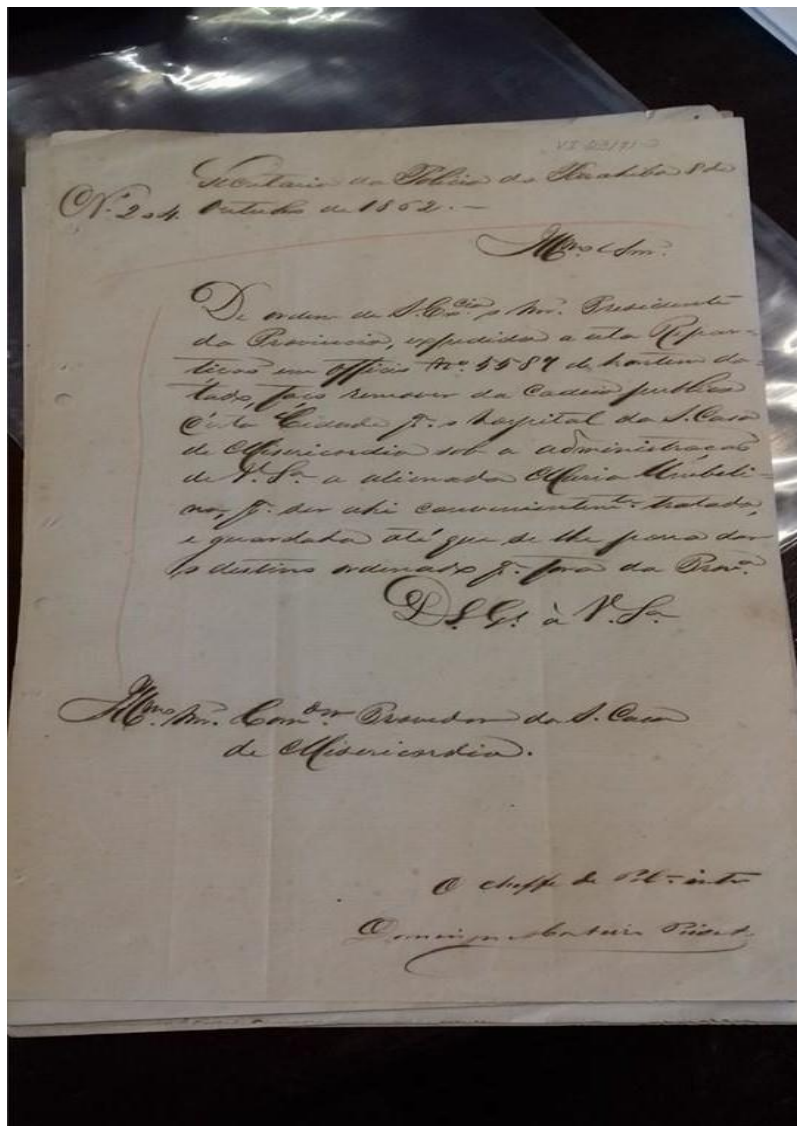 Secretaria da Policia da Parahiba 8 de
N.º 204. Outubro de 1862. —
Illmo Snr.
De ordem de S. Excia o Snr. Presidente
da Provincia, expedida a esta Repar-
tição em officio N.º 5587 de hontem da-
tado, faço remover da Cadeia publica
d'esta Cidade pª o hospital da S. Casa
de Misericordia sob a administração
de V. Sª a alienada Maria Umbeli-
na, pª ser ahi convenientemte tratada,
e guardada até que se lhe possa dar
o destino ordenado pª fora da Provª
Ds. Ge. à V. Sª
Illmo Snr. Comdor Provedor da S. Casa
de Misericordia.
O Cheffe de Pol.
Domingos Monteiro